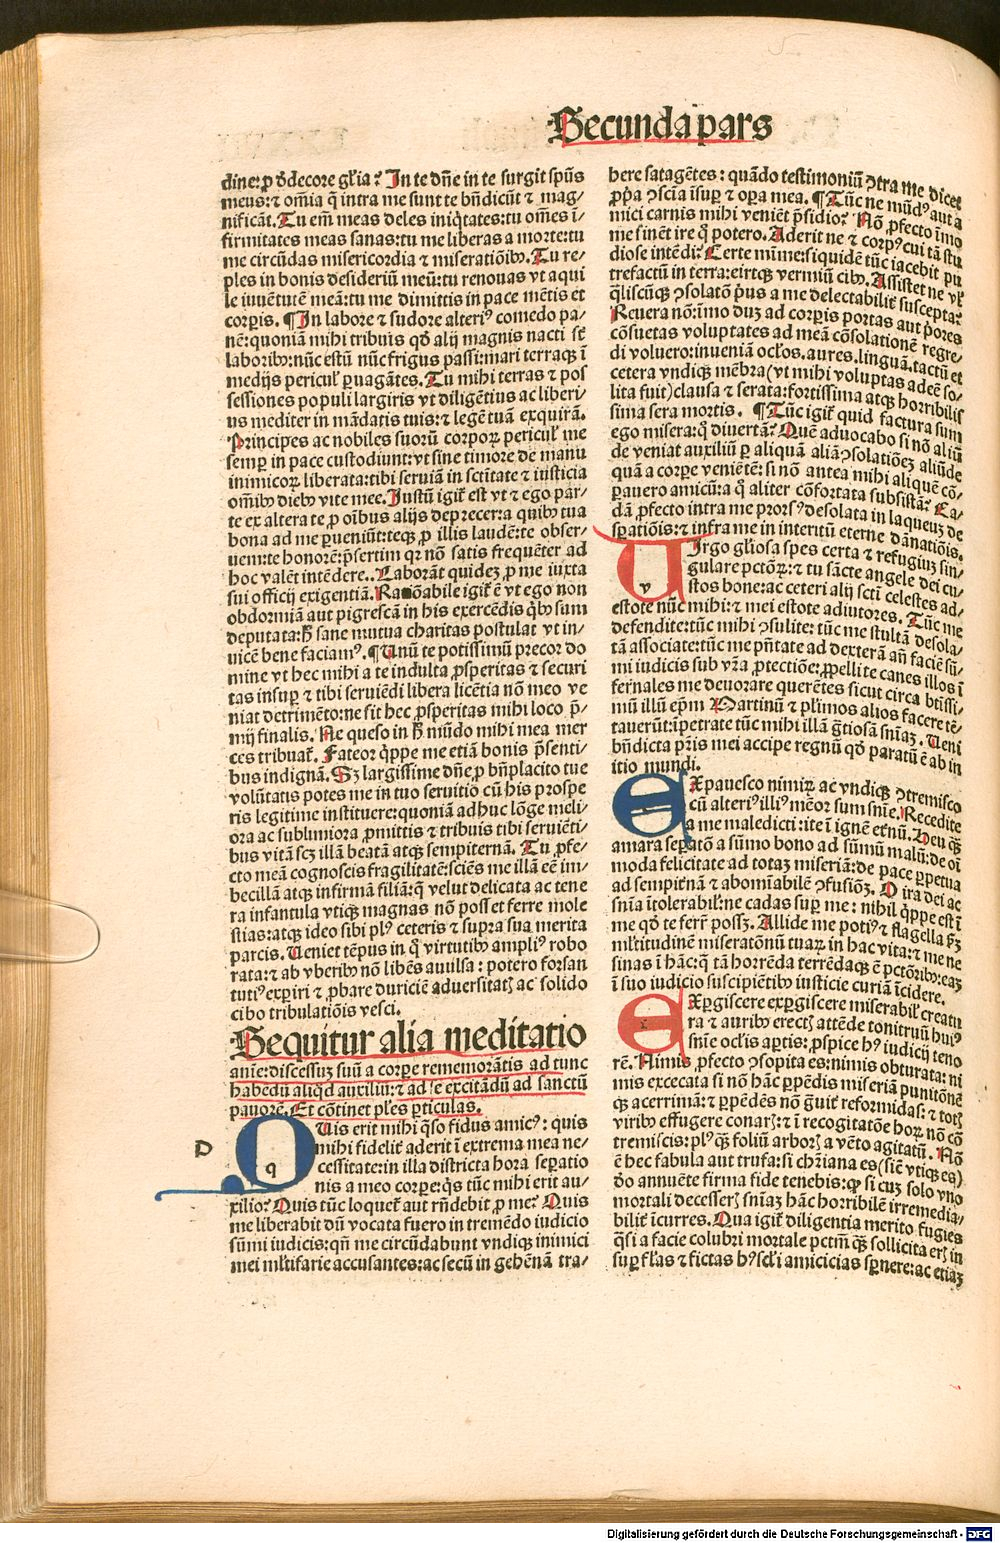 Secunda pars
dine: ꝑ ⁊decore gl̄ia? In te dn̄e in te surgit spūs
meus: ⁊ om̄ia q̄ intra me sunt te bn̄dicūt ⁊ mag⸗
nificāt. Tu em̄ meas deles iniq̄tates: tu om̄es ī⸗
firmitates meas sanas: tu me liberas a morte: tu
me circūdas misericordia ⁊ miseratiōibꝰ. Tu re⸗
ples in bonis desideriū meū: tu renouas vt aqui
le iuuētutē meā: tu me dimittis in pace mētis et
corpis. ¶ In labore ⁊ sudore alteriꝰ comedo pa⸗
nē: quoniā mihi tribuis qđ alij magnis nacti sē
laboribꝰ: nūc estū nūc frigus passi: mari terraqꝫ ī
medijs pericul' ꝑuagātes. Tu mihi terras ⁊ pos
sessiones populi largiris vt diligētius ac liberi⸗
us mediter in mādatis tuis: ⁊ legē tuā exquirā.
Principes ac nobiles suorū corpoꝝ pericul' me
semꝑ in pace custodiunt: vt sine timore de manu
inimicoꝝ liberata: tibi seruiā in sctītate ⁊ iusticia
om̄ibꝰ diebꝰ vite mee. Justū igit̄ est vt ⁊ ego par⸗
te ex altera te ꝓ oībus alijs deprecer: a quibꝰ tua
bona ad me ꝑueniūt: teqꝫ ꝓ illis laudē: te obser⸗
uem: te honorē: p̄sertim qꝛ nō satis frequēter ad
hoc valēt intēdere.. Laborāt quidez ꝓ me iuxta
sui officij exigentiā. Ratōabile igit̄ ē vt ego non
obdormiā aut pigrescā in his exercēdis q̄bꝰ sum
deputata: hͦ sane mutua charitas postulat vt in⸗
uicē bene faciamꝰ. ¶ Unū te potissimū precor do
mine vt hec mihi a te indulta ꝓsperitas ⁊ securi
tas insuꝑ ⁊ tibi seruiēdi libera licētia nō meo ve
niat detrimēto: ne sit hec ꝓsperitas mihi loco p̄⸗
mij finalis. Ne queso in hͦ mūdo mihi mea mer
ces tribuat̄. Fateor q̄ppe me etiā bonis p̄senti⸗
bus indignā. Sꝫ largissime dn̄e ꝓ bn̄placito tue
volūtatis potes me in tuo seruitio cū his prospe
ris legitime instituere: quoniā adhuc lōge meli⸗
ora ac sublimiora ꝓmittis ⁊ tribuis tibi seruiēti⸗
bus vitā scꝫ illā beatā atqꝫ sempiternā. Tu ꝓfe⸗
cto meā cognoscis fragilitatē: sciēs me illā eē im⸗
becillā atqꝫ infirmā filiā: q̄ velut delicata ac tene
ra infantula vtiqꝫ magnas nō posset ferre mole
stias: atqꝫ ideo sibi plꝰ ceteris ⁊ supra sua merita
parcis. Ueniet tēpus in q̊ virtutibꝰ ampliꝰ robo
rata: ⁊ ab vberibꝰ nō libēs auulsa: potero forsan
tutiꝰ exꝑiri ⁊ ꝓbare duriciē aduersitatꝫ ac solido
cibo tribulatiōis vesci.
Sequitur alia meditatio
anīe: discessuꝫ suū a corpe rememorātis ad tunc
habēdū aliqđ auxiliū: ⁊ ad se excitādū ad sanctū
pauorē. Et cōtinet pl̄es ꝑticulas.
D
q
Uis erit mihi q̄so fidus amicꝰ: quis
mihi fidelit̄ aderit ī extrema mea ne⸗
cessitate: in illa districta hora seꝑatio
nis a meo corpe: q̄s tūc mihi erit au⸗
xilio? Quis tūc loquet̄ aut rn̄debit ꝓ me? Quis
me liberabit dū vocata fuero in tremēdo iudicio
sūmi iudicis: qn̄ me circūdabunt vndiqꝫ inimici
mei ml̄tifarie accusantes: ac secū in gehēnā tra⸗
here satagētes: quādo testimoniū ꝯtra me dicet
ꝓp̄a ꝯsciā īsuꝑ ⁊ oꝑa mea. ¶ Tūc ne mūdꝰ aut a
mici carnis mihi veniēt p̄sidio? Nō ꝓfecto īmo
me sinēt ire q̊ potero. Aderit ne ⁊ corpꝰ cui tā stu
diose intēdi? Certe mīme: siquidē tūc iacebit pu
trefactū in terra: eritqꝫ vermiū cibꝰ. Assistet ne vl̄
q̄liscūqꝫ ꝯsolatō p̄us a me delectabilit̄ suscepta?
Reuera nō: īmo duꝫ ad corpis portas aut p̄ores
cōsuetas voluptates ad meā cōsolationē regre⸗
di voluero: inueniā ocl̄os. aures. linguā. tactū et
cetera vndiqꝫ mēbra (vt mihi voluptas adeē so⸗
lita fuit) clausa ⁊ serata: fortissima atqꝫ horribilis
sima sera mortis. ¶ Tūc igit̄ quid factura sum
ego misera: q̊ diuertā? Quē aduocabo si nō aliū
de veniat auxiliū ꝑ aliquā aliā ꝯsolatiōeꝫ aliūde
quā a corpe veniētē: si nō antea mihi aliquē cō⸗
ꝑauero amicū: a q̊ aliter cōfortata subsistā? Ca⸗
dā ꝓfecto intra me prorsꝰ desolata in laqueuꝫ de
sꝑatiōis: ⁊ infra me in interitū eterne dānatiōis.
v
Irgo gl̄iosa spes certa ⁊ refugiuꝫ sin⸗
gulare pctōꝝ: ⁊ tu sācte angele dei cu⸗
stos bone: ac ceteri alij scti celestes ad⸗
estote nūc mihi: ⁊ mei estote adiutores. Tūc me
defendite: tūc mihi ꝯsulite: tūc me stultā desola⸗
tā associate: tūc me pn̄tate ad dexterā an̄ faciē sū⸗
mi iudicis sub vr̄a ꝓtectiōe: ꝓpellite canes illos ī
fernales me deuorare querētes sicut circa btissi⸗
mū illū ep̄m Martinū ⁊ pl̄imos alios facere tē⸗
tauerūt: īpetrate tūc mihi illā gr̄tiosā sn̄iaꝫ. Ueni
bn̄dicta pr̄is mei accipe regnū qđ paratū ē ab in
itio mundi.
Expauesco nimiꝝ ac vndiqꝫ ꝯtremisco
cū alteriꝰ illiꝰ mēoꝛ sum sn̄ie. Recedite
a me maledicti: ite ī ignē et̄nū. Heu qꝫ
amara seꝑatō a sūmo bono ad sūmū malū: de oī
moda felicitate ad totaꝫ miseriā: de pace ꝑpetua
ad sempit̄nā ⁊ abomīabilē ꝯfusiōꝫ. O ira dei ac
sn̄ia ītolerabil': ne cadas suꝑ me: nihil q̄ppe est ī
me qđ te ferr̄ possꝫ. Allide me potiꝰ ⁊ flagella ꝑꝫ
ml̄titudinē miseratōnū tuaꝝ in hac vita: ⁊ me ne
sinas ī hāc: q̄ tā horrēda terrēdaqꝫ ē pctōribꝰ: eaꝫ
ī suo iudicio suscipiētibꝰ iusticie curiā īcidere.
Expgiscere expgiscere miserabil' creatu
ra ⁊ auribꝰ erectꝫ attēde tonitruū huiꝰ
sn̄ie ocl̄is aꝑtis: ꝓspice hꝰ iudicij teno
rē. Nimis ꝓfecto ꝯsopita es: nimis obturata: ni
mis excecata si nō hāc ꝑpēdis miseriā punitiōnē
qꝫ acerrimā: ⁊ ꝑpēdēs nō gͣuit̄ reformidas: ⁊ totꝫ
viribꝰ effugere conarꝫ: ⁊ ī recogitatōe hoꝝ nō cō
tremiscis: plꝰ qꝫ foliū arborꝫ a vēto agitatū. Nō
ē hec fabula aut trufa: si chr̄iana es (siē vtiqꝫ es)
đo annuēte firma fide tenebis: qꝫ si cuꝫ solo vno
mortali decesserꝫ sn̄iaꝫ hāc horribilē irremedia⸗
bilit̄ īcurres. Qua igit̄ diligentia merito fugies
q̄si a facie colubri mortale pctm̄ qꝫ sollicita erꝫ in
suꝑ fl̄as ⁊ fictas hꝰ scl̄i amicicias sꝑnere: ac etiaꝫ
Digitalisierung gefördert durch die Deutsche Forschungsgemeinschaft - DFG